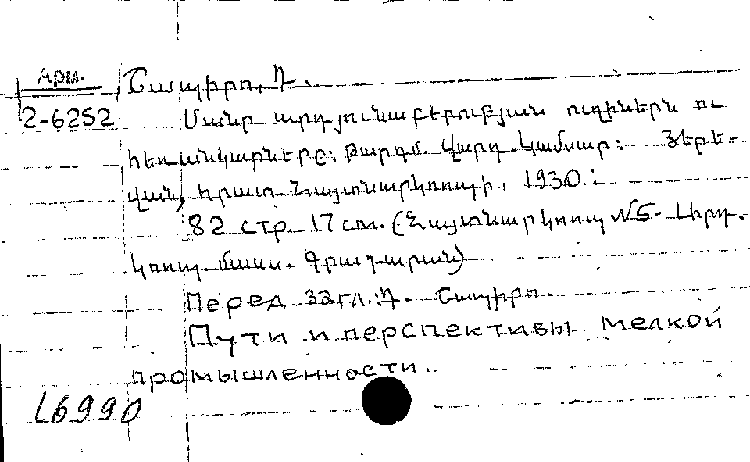 Арм.
2-6252
Շապիրո, Դ.
Մանր արդյունաբերության ուղիներն ու
հեռանկարները: Թարգմ. Վարդ. Կամսար: Յերե-
վան, Հրատ Հայտնարկոոպի, 1930:
82 стр. 17 см. (Հայտնարկոոպ №5-
կոոպ մասս. Գրադարան)
Перед загл: Դ. Շապիրո
Пути и перспективы мелкой
промышленности.
L6990